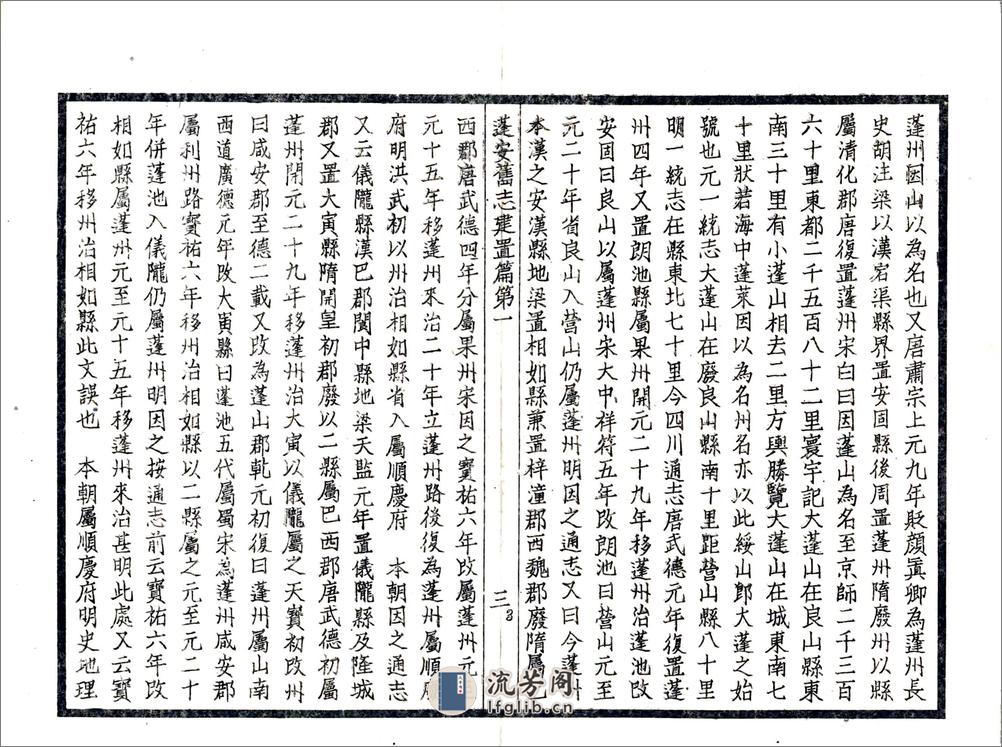 蓬州因山以為名也又唐肅宗上元九年貶顔眞卿為蓬州長
史胡注梁以漢宕渠縣界置安固縣後周置蓬州隋廢州以縣
屬清化郡唐復置蓬州宋白曰因蓬山為名至京師二千三百
六十里東都二千五百八十二里寰宇記大蓬山在良山縣東
南三十里有小蓬山相去二里方輿勝覽大蓬山在城東南七
十里狀若海中蓬萊因以為名州名亦以此綏山郎大蓬之始
號也元一統志大蓬山在廢良山縣南十里距營山縣八十里
明一統志在縣東北七十里今四川通志唐武德元年復置蓬
州四年又置朗池縣屬果州開元二十九年移蓬州治蓬池改
安固曰良山以屬蓬州宋大中祥符五年改朗池曰營山元至
元二十年省良山入營山仍屬蓬州明因之通志又曰今蓬州
本漢之安漢縣地梁置相如縣兼置梓潼郡西魏郡廢隋屬巴
蓬安舊志建置篇第一
三
西郡唐武德四年分屬果州宋因之寶祐六年改屬蓬州元
元十五年移蓬州來治二十年立蓬州路後復為蓬州屬順慶
府明洪武初以州治相如縣省入屬順慶府 本朝因之通志
又云儀隴縣漢巴郡閬中縣地梁天監元年置儀隴縣及隆城
郡又置大寅縣隋開皇初郡廢以二縣屬巴西郡唐武德初屬
蓬州開元二十九年移蓬州治大寅以儀隴屬之天寶初改州
曰咸安郡至德二載又改為蓬山郡乾元初復曰蓬州屬山南
西道廣德元年改大寅縣曰蓬池五代屬蜀宋為蓬州咸安郡
屬利州路寶祐六年移州治相如縣以二縣屬之元至元二十
年併蓬池入儀隴仍屬蓬州明因之按通志前云寶祐六年改
相如縣屬蓬州元至元十五年移蓬州來治甚明此處又云寶
祐六年移州治相如縣此文誤也 本朝屬順慶府明史地理
流芳阁
lfglib.cn